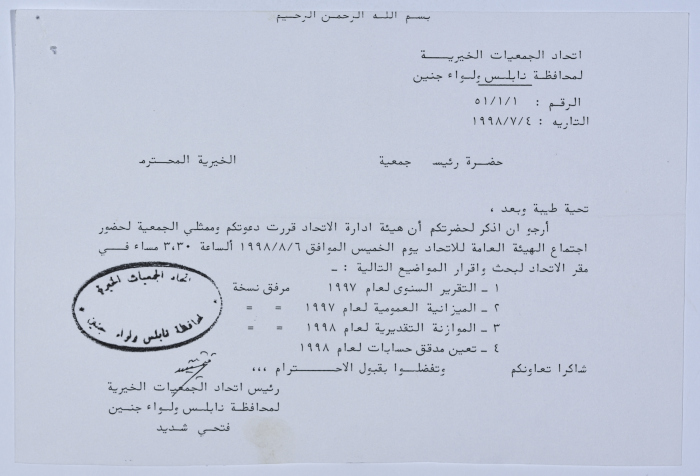 بسم الله الرحمن الرحيم
اتحاد الجمعيات الخيريـــة
لمحافظة نابلس ولواء جنين
الرقم : ٥١/١/١
التاريه : ١٩٩٨/٧/٤
حضرة رئيس جمعية الخيرية المحترم
تحية طيبة وبعد ،
أرجو ان اذكر لحضرتكم أن هيئة ادارة الاتحاد قررت دعوتكم وممثلي الجمعية لحضور
اجتماع الهيئة العامة للاتحاد يوم الخميس الموافق ١٩٩٨/٨/٦ ألساعة ٣،٣٠ مساء فــي
مقر الاتحاد لبحث واقرار المواضيع التالية : ـ
١ ـ التقرير السنوى لعام ١٩٩٧ مرفق نسخة
٢ ـ الميزانية العمومية لعام ١٩٩٧ = =
٣ ـ الموازنة التقديرية لعام ١٩٩٨ = =
٤ ـ تعين مدقق حسابات لعام ١٩٩٨
شاكرا تعاونكم وتفضلــوا بقبول الاحـــتـــرام ،،،
رئيس اتحاد الجمعيات الخيرية
لمحافظة نابلس ولواء جنين
فتحي شديد
اتحاد الجمعيات الخيرية
لمحافظة نابلس ولواء جنين